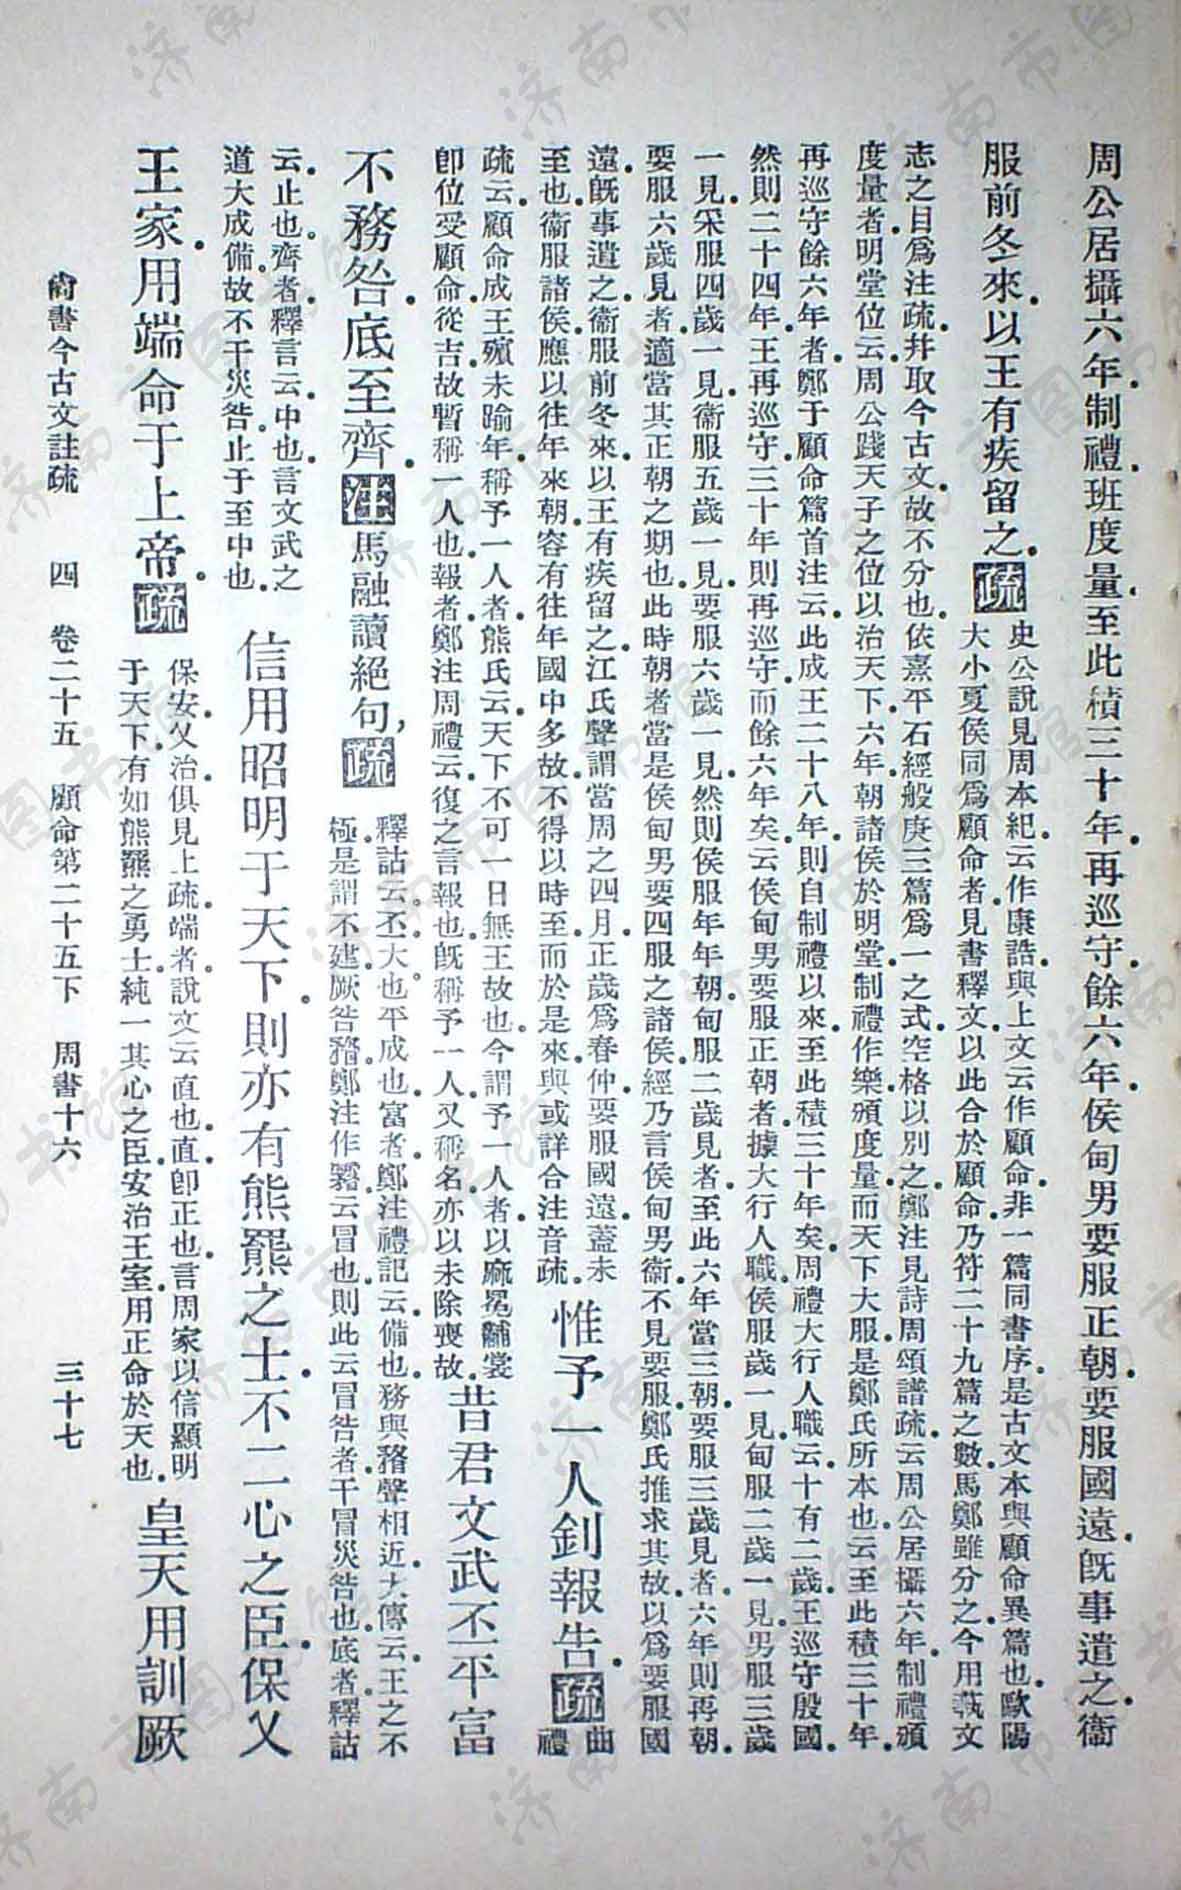 周公居攝六年制禮班度量至此積三十年再巡守餘六年侯甸男要服正朝要服國遠旣事遣之衞
服前冬來以王有疾留之疏
史公說見周本紀云作康誥與上文云作顧命非一篇同書序是古文本與顧命異篇也歐陽
大小夏侯同爲顧命者見書釋文以此合於顧命乃符二十九篇之數馬鄭雖分之今用蓺文
志之目爲注疏幷取今古文故不分也依熹平石經般庚三篇爲一之式空格以別之鄭注見詩周頌譜疏云周公居攝六年制禮頒
度量者明堂位云周公踐天子之位以治天下六年朝諸侯於明堂制禮作樂頒度量而天下大服是鄭氏所本也云至此積三十年
再巡守餘六年者鄭于顧命篇首注云此成王二十八年則自制禮以來至此積三十年矣周禮大行人職云十有二歲王巡守殷國
然則二十四年王再巡守三十年則再巡守而餘六年矣云侯甸男要服正朝者據大行人職侯服歲一見甸服二歲一見男服三歲
一見采服四歲一見衞服五歲一見要服六歲一見然則侯服年年朝甸服二歲見者至此六年當三朝要服三歲見者六年則再朝
要服六歲見者適當其正朝之期也此時朝者當是侯甸男要四服之諸侯經乃言侯甸男衞不見要服鄭氏推求其故以爲要服國
遠旣事遣之衞服前冬來以王有疾留之江氏聲謂當周之四月正歲爲春仲要服國遠蓋未
至也衞服諸侯應以往年來朝容有往年國中多故不得以時至而於是來與或詳合注音疏
惟予一人釗報告疏
曲
禮
疏云顧命成王殯未踰年稱予一人者熊氏云天下不可一日無王故也今謂予一人者以麻冕黼裳
卽位受顧命從吉故暫稱一人也報者鄭注周禮云復之言報也旣稱予一人又稱名亦以未除喪故
昔君文武丕平富
不務咎底至齊注馬融讀絕句疏
釋詁云丕大也平成也富者鄭注禮記云備也務與䝉聲相近大傳云王之不
極是謂不建厥咎䝉鄭注作霧云冒也則此云冒咎者干冒災咎也底者釋詁
云止也齊者釋言云中也言文武之
道大成備故不干災咎止于至中也
信用昭明于天下則亦有熊羆之士不二心之臣保乂
王家用端命于上帝疏
保安乂治俱見上疏端者說文云直也直卽正也言周家以信顯明
于天下有如熊羆之勇士純一其心之臣安治王室用正命於天也
皇天用訓厥
尙書今古文註疏　四　卷二十五　顧命第二十五下　周書十六　三十七